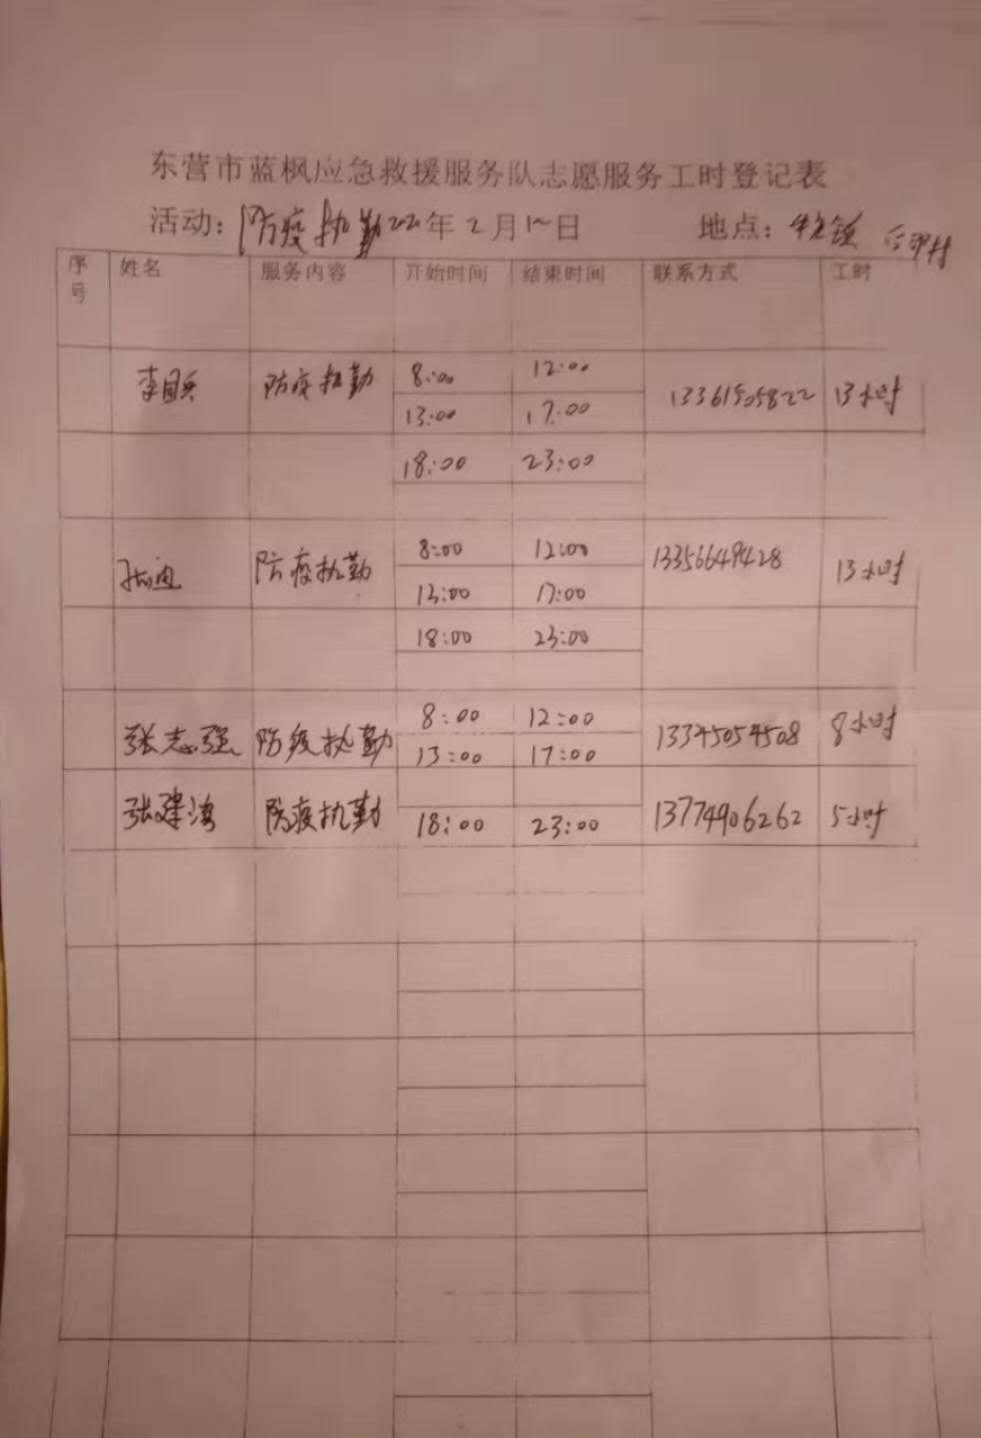 东营市蓝枫应急救援服务队志愿服务工时登记表
活动：防疫执勤 年2月 日 地点：
序号 姓名 服务内容 开始时间 结束时间 联系方式 工时
李国兵 防疫执勤 8:00 12:00 13361505822 13小时
13:00 17:00
18:00 23:00
防疫执勤 8:00 12:00 13小时
13:00 17:00
18:00 23:00
张志强 防疫执勤 8:00 12:00 13345054508 8小时
13:00 17:00
张建海 防疫执勤 18:00 23:00 13774906262 5小时